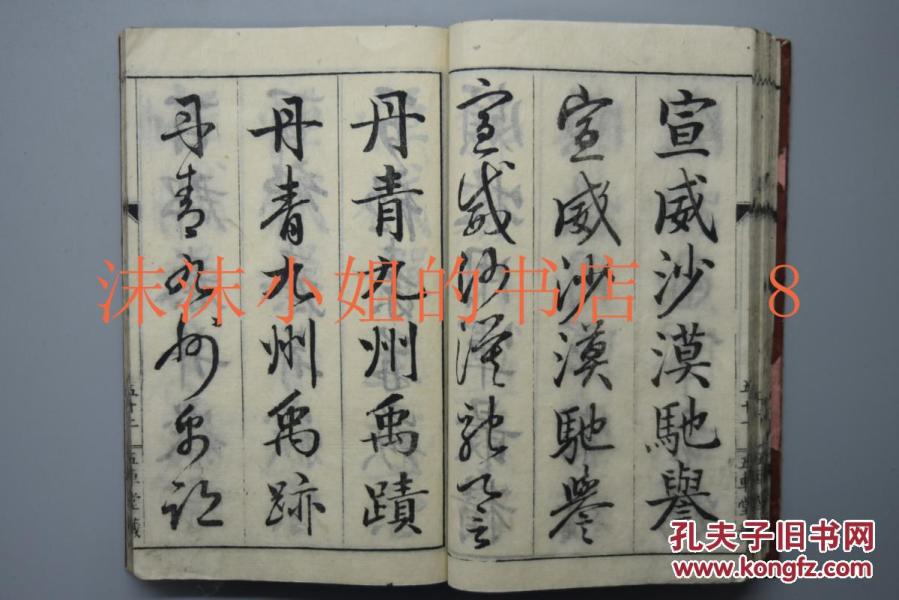 宣威沙漠馳譽
宣威沙漠馳譽
宣威沙漠馳譽
丹青九州禹蹟
丹青九州禹跡
丹青九州禹跡
五十二
五車堂藏
沫沫小姐的书店 8
孔夫子旧书网
www.kongfz.com